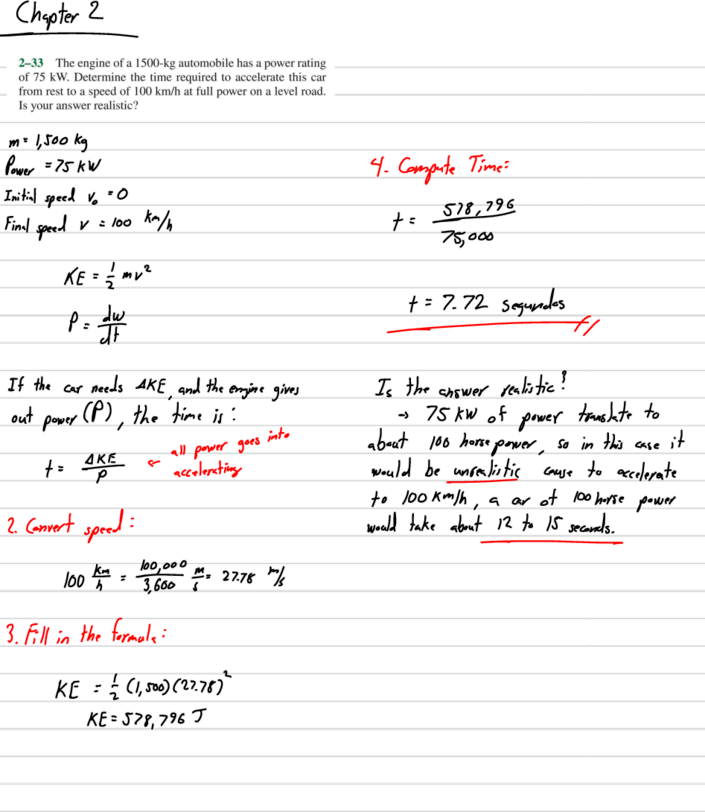 Chapter 2
2–33 The engine of a 1500-kg automobile has a power rating
of 75 kW. Determine the time required to accelerate this car
from rest to a speed of 100 km/h at full power on a level road.
Is your answer realistic?
m = 1,500 kg
Power = 75 kW
Initial speed v₀ = 0
Final speed v = 100 km/h
KE = 1/2 mv²
P = dw/dt
If the car needs ΔKE, and the engine gives
out power (P), the time is:
t = ΔKE/P ← all power goes into
accelerating
2. Convert speed:
100 km/h = 100,000/3,600 m/s = 27.78 m/s
3. Fill in the formula:
KE = 1/2 (1,500)(27.78)²
KE = 578,796 J
4. Compute Time:
t = 578,796/75,000
t = 7.72 segundos
Is the answer realistic?
→ 75 kW of power translate to
about 100 horse power, so in this case it
would be unrealistic cause to accelerate
to 100 km/h, a car of 100 horse power
would take about 12 to 15 seconds.